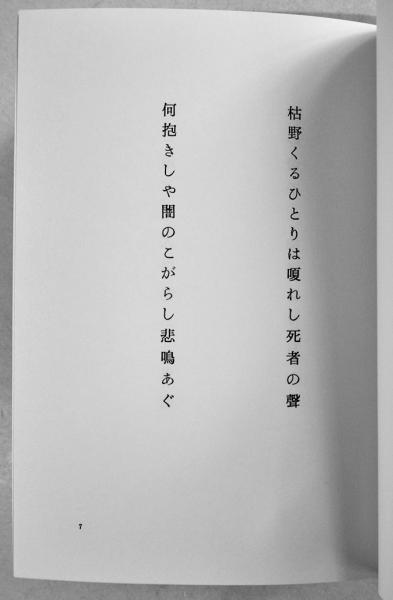 枯野くるひとりは嗄れし死者の聲
何抱きしや闇のこがらし悲鳴あぐ
7